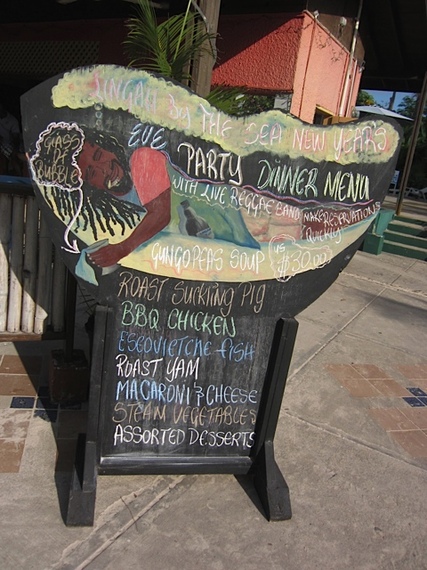 BY THE SEA NEW YEARS
EVE PARTY DINNER MENU
WITH LIVE REGGAE BAND
MAKE RESERVATIONS
QUICKLY
GLASS
OF
BUBBLE
US
$30.00
GUNGO PEAS SOUP
ROAST SUCKLING PIG
BBQ CHICKEN
ESCOVIETCHE FISH
ROAST YAM
MACARONI & CHEESE
STEAM VEGETABLES
ASSORTED DESSERTS